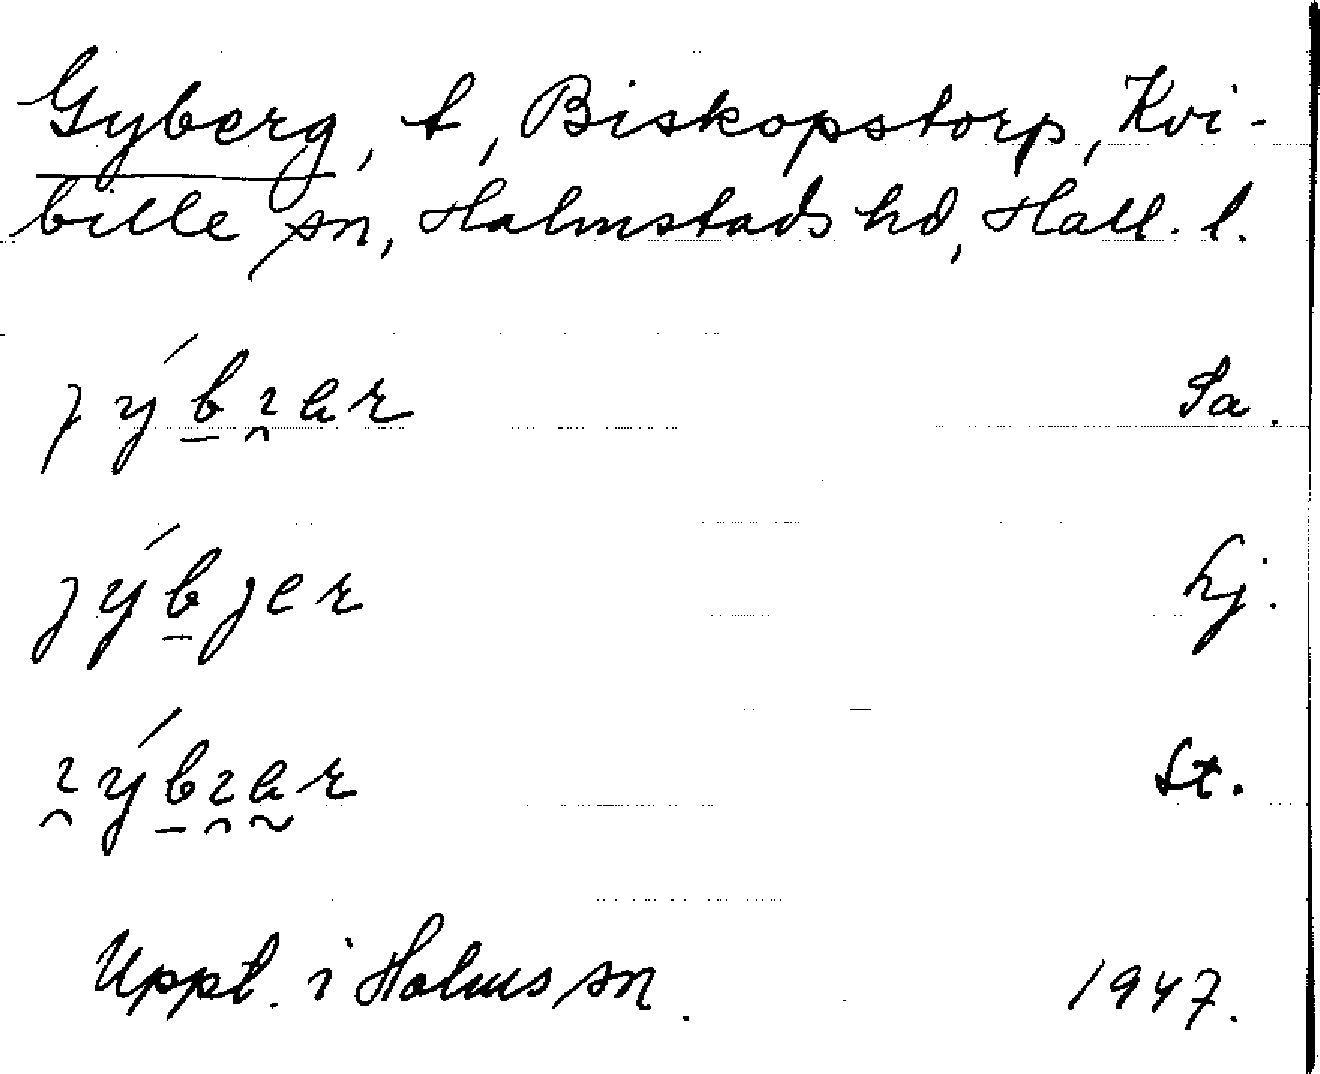 Gyberg, t, Biskopstorp, Kvi-
bille sn, Halmstads hd, Hall. l.
Sa.
jýbjer hj.
St.
Uppt. i Holms sn. 1947.